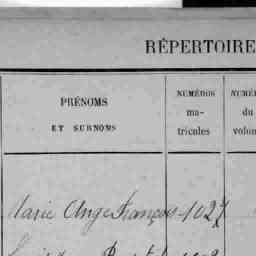 RÉPERTOIRE
PRÉNOMS
ET SURNOMS
NUMÉROS
ma-
tricules
NUMÉ
du
volun
Marie Ange François 1027